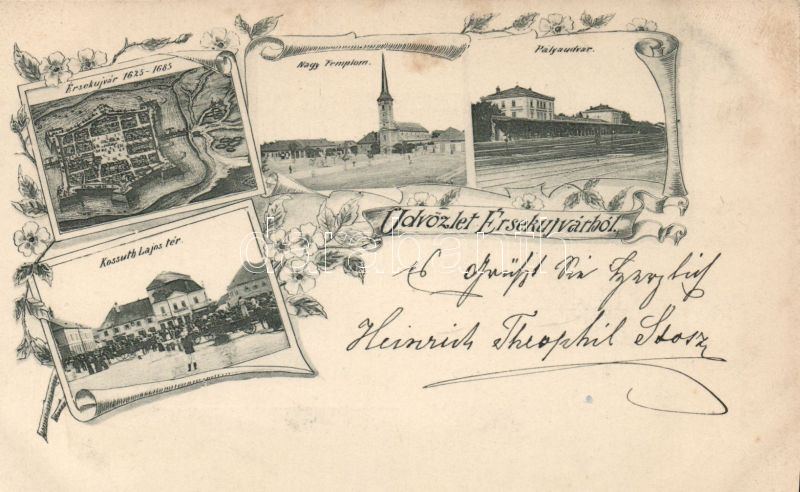 Érsekujvár 1625-1685
Nagy Templom.
Pályaudvar.
Üdvözlet Érsekujvárból.
Kossuth Lajos tér.
Es Grüßt Sie Herzlich
Heinrich Theophil Stosz